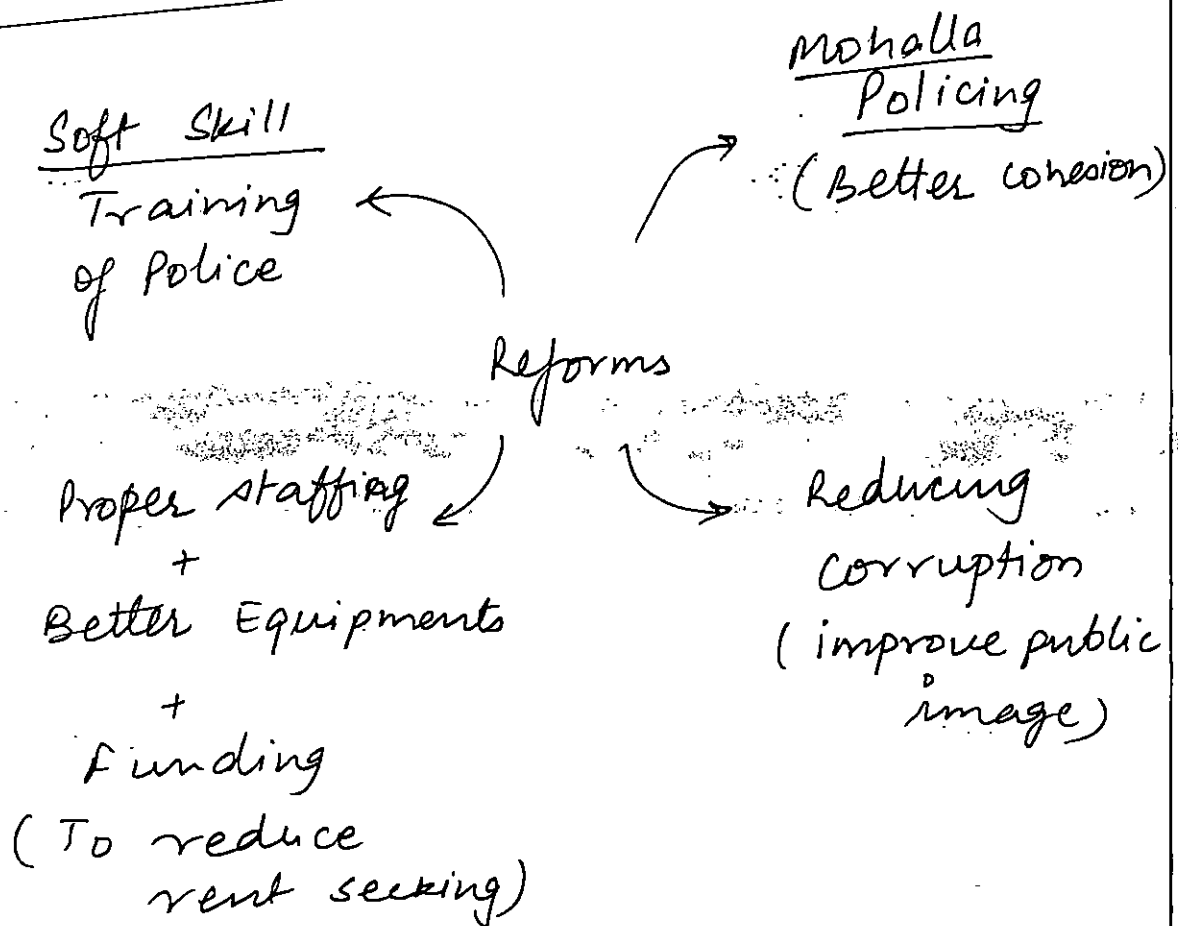 Soft Skill
Training
of Police
Mohalla
Policing
(Better cohesion)
Reforms
Proper staffing
+
Better Equipments
+
Funding
(To reduce
rent seeking)
Reducing
corruption
(improve public
image)